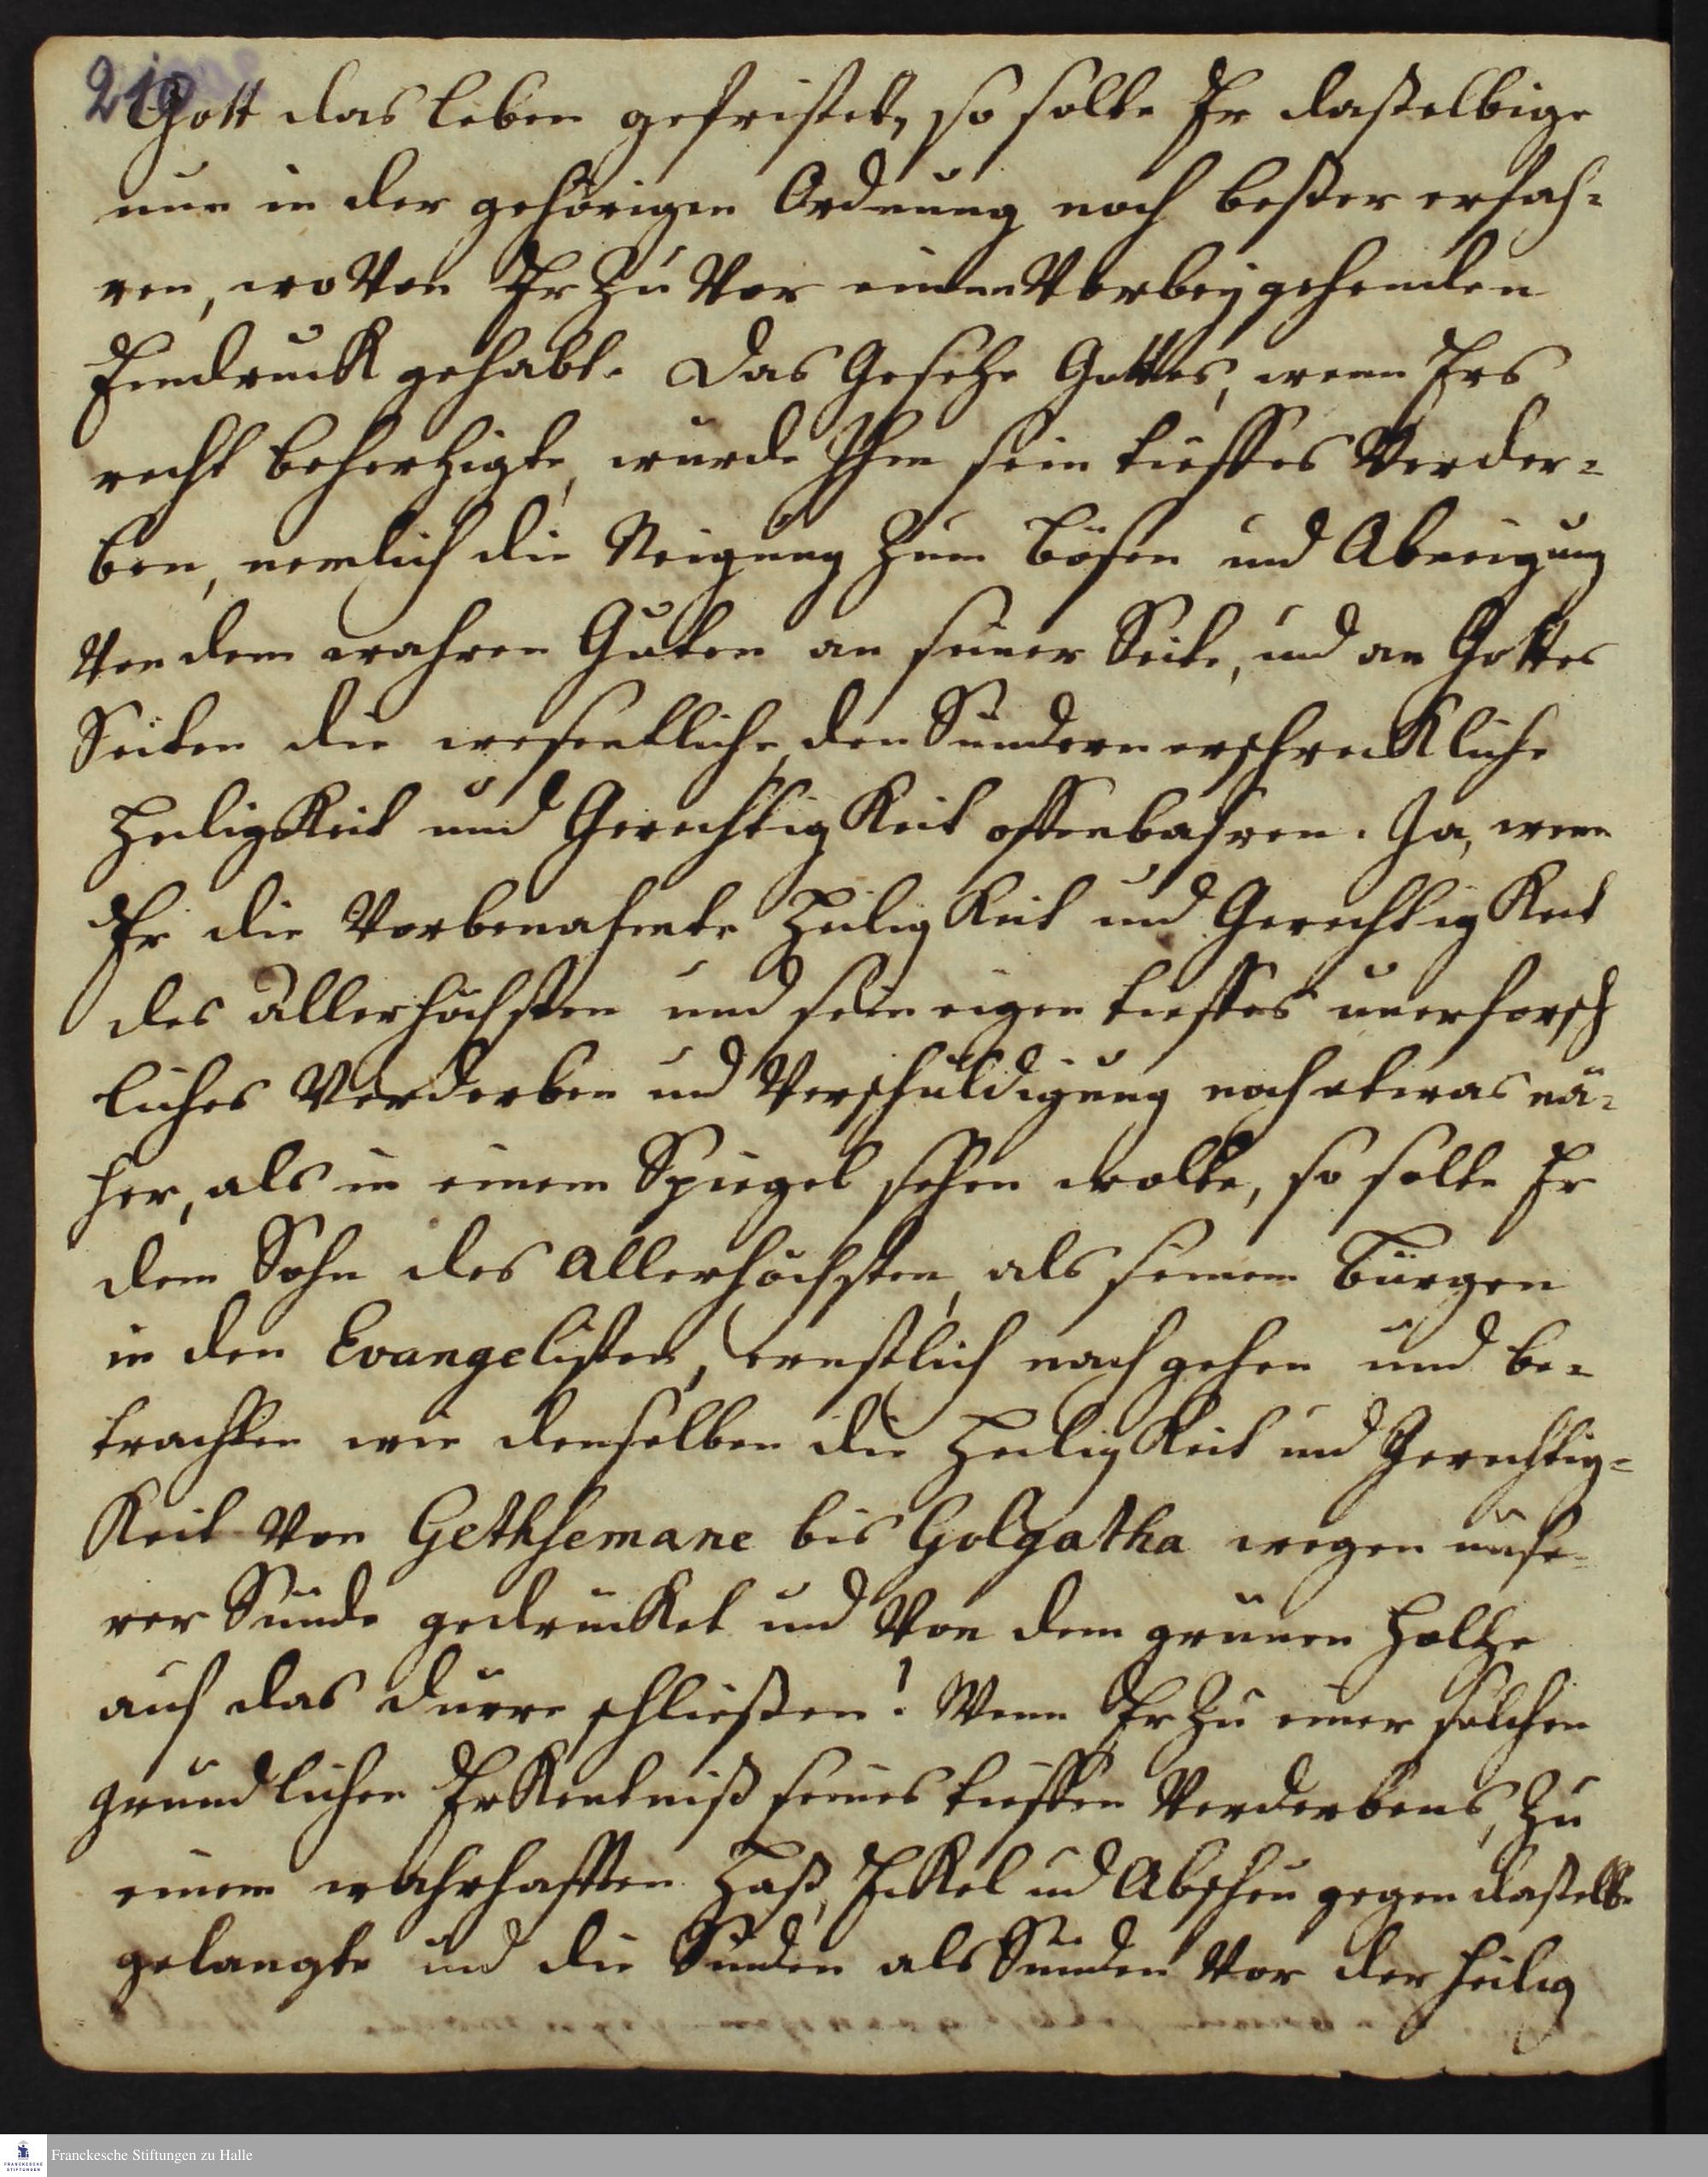 210
Gott das leben gefristet, so solte Er daßelbige
nun in der gehörigen Ordnung noch beßer erfah-
ren, wovon Er zuvor einen vorbeygehenden
Eindruck gehabt. Das Gesetze Gottes, wenn Ers
recht behertzigte, würde Ihm sein tieffes Verder-
ben, nemlich die Neigung zum bösen und Abneigung
von dem wahren Guten an seiner Seite, und an Gottes
Seiten die wesentliche, den Sündern erschreckliche
Heiligkeit und Gerechtigkeit offenbahren. Ja, wenn
Er die vorbenahmte Heiligkeit und Gerechtigkeit
des Allerhöchsten und sein eigen tieffes unerforsch
liches Verderben und Verschuldigung noch etwas nä-
her, als in einem Spiegel sehen wolte, so solte Er
dem Sohn des Allerhöchsten, als seinem Bürgen
in den Evangelisten, ernstlich nachgehen und be-
trachten wie denselben die Heiligkeit und Gerechtig-
keit von Gethsemane bis Golgatha wegen unse-
rer Sünde gedrücket und von dem grünen Holtze
auf das dürre schließen! Wenn Er zu einer solchen
gründlichen Erkentniß seines tieffen Verderbens, zu
einem wahrhafften Haß, Eckel und Abscheu gegen daßelbe
gelangte und die Sünden als Sünden vor der heilig
Franckesche Stiftungen zu Halle
FRANCKESCHE
STIFTUNGEN